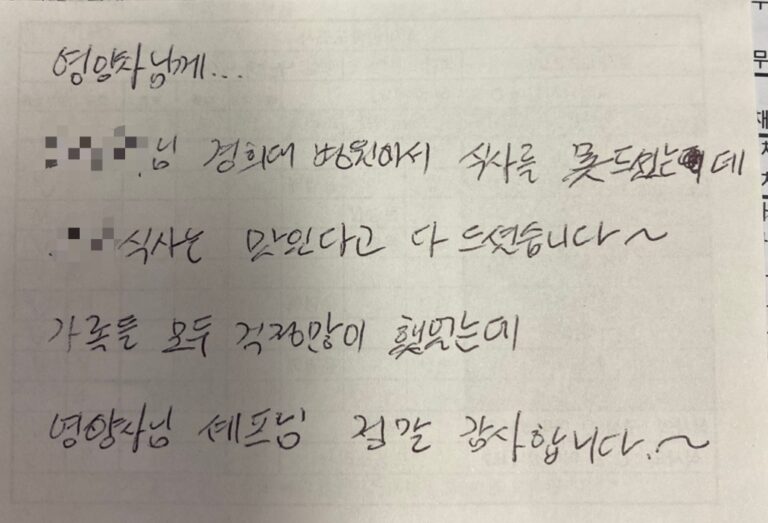 영양사님께...
님 경희대 병원에서 식사를 못드셨는데
식사는 맛있다고 다 드셨습니다~
가족들 모두 걱정많이 했었는데
영양사님 셰프님 정말 감사합니다.~
무
재